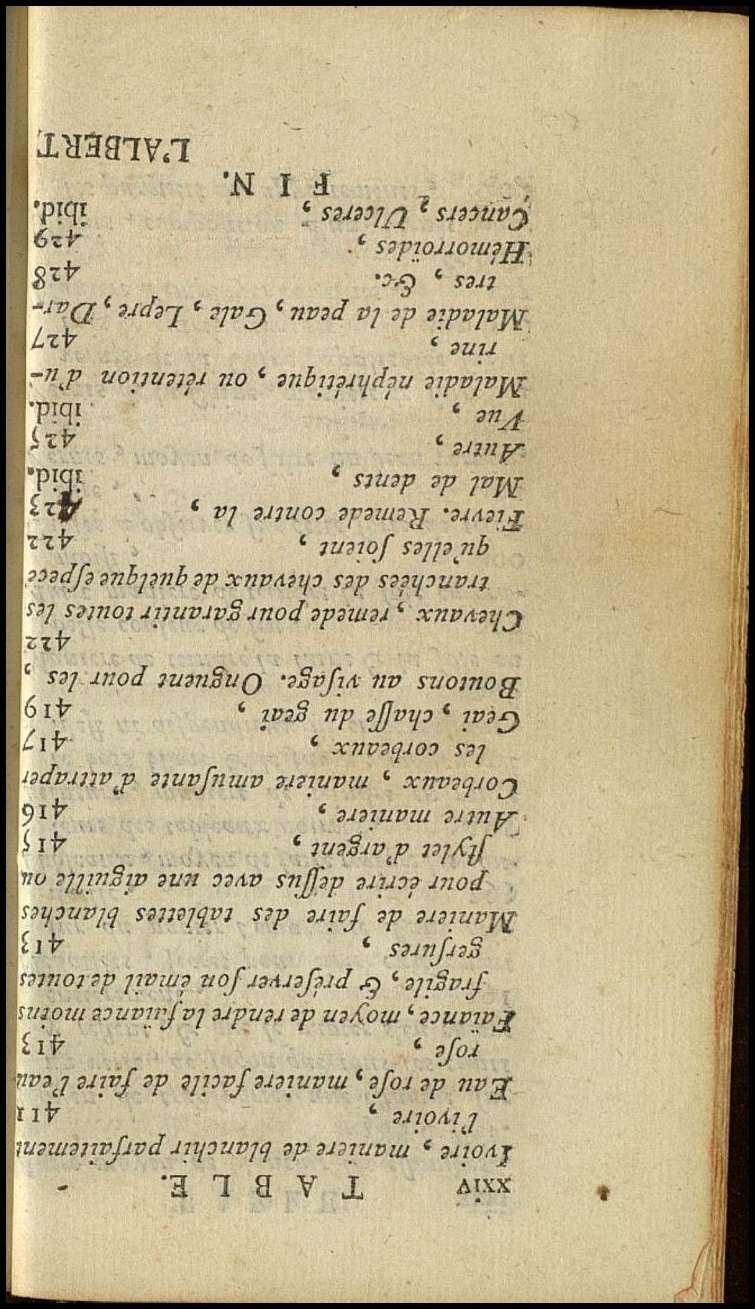 xxiv TABLE.
Ivoire, maniere de blanchir parfaitement
l'ivoire, 411
Eau de rose, maniere facile de faire l'eau
rose, 413
Faïance, moyen de rendre la faïance moins
fragile, & préserver son émail de toutes
gersures, 413
Maniere de faire des tablettes blanches
pour écrire dessus avec une aiguille ou
stylet d'argent, 415
Autre maniere, 416
Corbeaux, maniere amusante d'attraper
les corbeaux, 417
Geai, chasse du geai, 419
Boutons au visage. Onguent pour les,
422
Chevaux, remede pour garantir toutes les
tranchées des chevaux de quelque espece
qu'elles soient, 422
Fievre. Remede contre la, 423
Mal de dents, ibid.
Autre, 425
Vue, ibid.
Maladie néphrétique, ou rétention d'u-
rine, 427
Maladie de la peau, Gale, Lepre, Dar-
tres, &c. 428
Hémorroïdes, 429
Cancers, Ulceres, ibid.
FIN.
L'ALBERT,